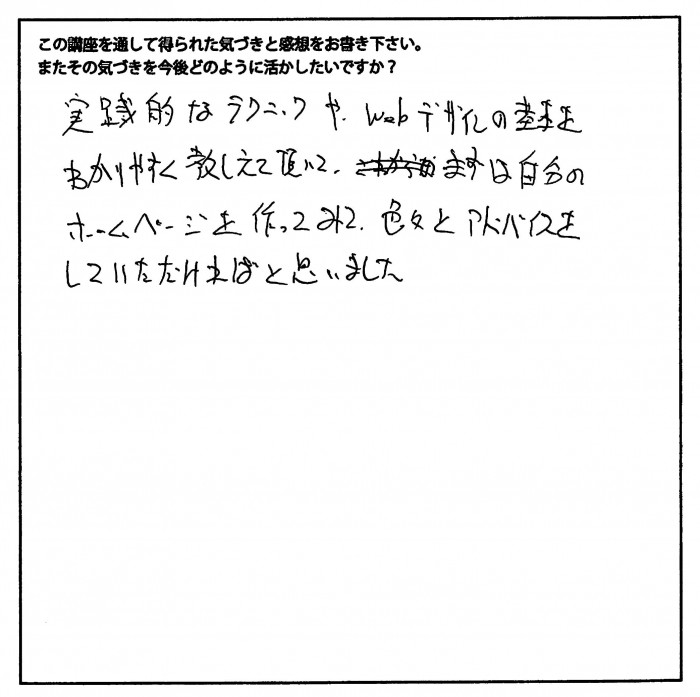 この講座を通して得られた気づきと感想をお書き下さい。
またその気づきを今後どのように活かしたいですか？
実践的なテクニックや、Webデザインの基本を
わかりやすく教しえて頂いて、まずは自分の
ホームページを作ってみて、色々とアドバイスを
していただければと思いました